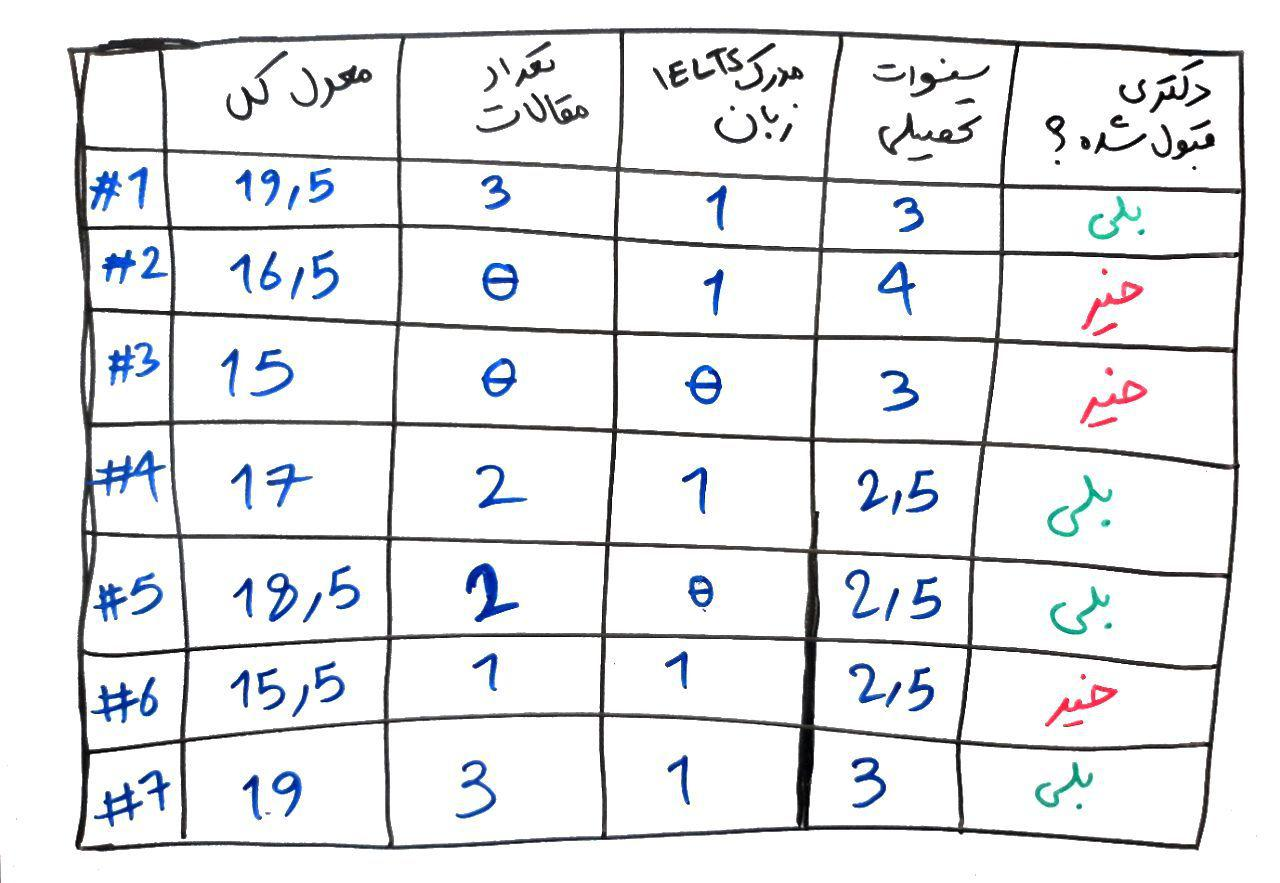 معدل کل | تعداد مقالات | مدرک IELTS زبان | سنوات تحصیلی | دکتری قبول شده ؟
#1 | 19,5 | 3 | 1 | 3 | بلی
#2 | 16,5 | 0 | 1 | 4 | خیر
#3 | 15 | 0 | 0 | 3 | خیر
#4 | 17 | 2 | 1 | 2,5 | بلی
#5 | 18,5 | 2 | 0 | 2,5 | بلی
#6 | 15,5 | 1 | 1 | 2,5 | خیر
#7 | 19 | 3 | 1 | 3 | بلی